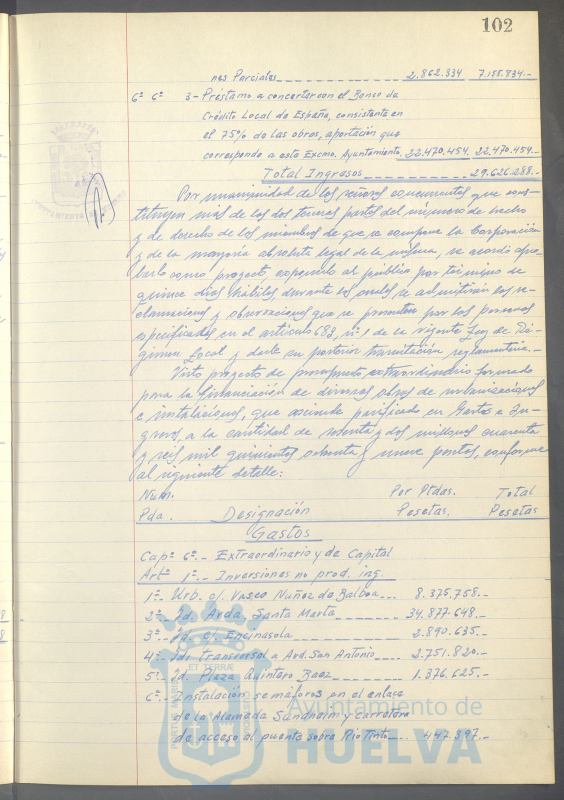 102
nes Parciales 2.862.834 7.155.834.-
6º 6º 3- Préstamo a concertar con el Banco de
Crédito Local de España, consistente en
el 75% de las obras, aportación que
corresponde a este Excmo. Ayuntamiento, 22.470.454 22.470.454.-
Total Ingresos 29.626.288.-
Por unanimidad de los señores concurrentes que cons-
tituyen más de las dos terceras partes del número de hecho
y de derecho de los miembros de que se compone la Corporación
y de la mayoría absoluta legal de la misma, se acordó apro-
barlo como proyecto, exponerlo al público por término de
quince días hábiles, durante los cuales se admitirán las re-
clamaciones y observaciones que se presenten por las personas
especificadas en el artículo 683, nº 1 de la vigente Ley de Ré-
gimen Local y darle su posterior tramitación reglamentaria.-
Visto proyecto de presupuesto extraordinario formado
para la financiación de diversas obras de urbanizaciones
e instalaciones, que asciende nivelado en Gastos e In-
gresos, a la cantidad de y dos millones cuarenta
y seis mil quinientas ochenta y nueve pesetas, conforme
al siguiente detalle:
Núm. Por Ptdas. Total
Pda. Designación Pesetas. Pesetas
Gastos
Capº 6º.- Extraordinario y de Capital
Artº 1º.- Inversiones no prod. ing.
1º- Urb. c/. Vasco Nuñez de Balboa 8.375.758.-
2º- Id. Avda. Santa Marta 34.877.648.-
3º- Id. c/. Encinasola 2.890.635.-
4º- Id. Transversal a Avd. San Antonio 2.751.820.-
5º- Id. Plaza Quintero Baez 1.376.625.-
6º- Instalación semáforos en el enlace
de la Alameda Sundheim y carretera
de acceso al puente sobre Rio Tinto 447.397.-
Ayuntamiento de
HUELVA